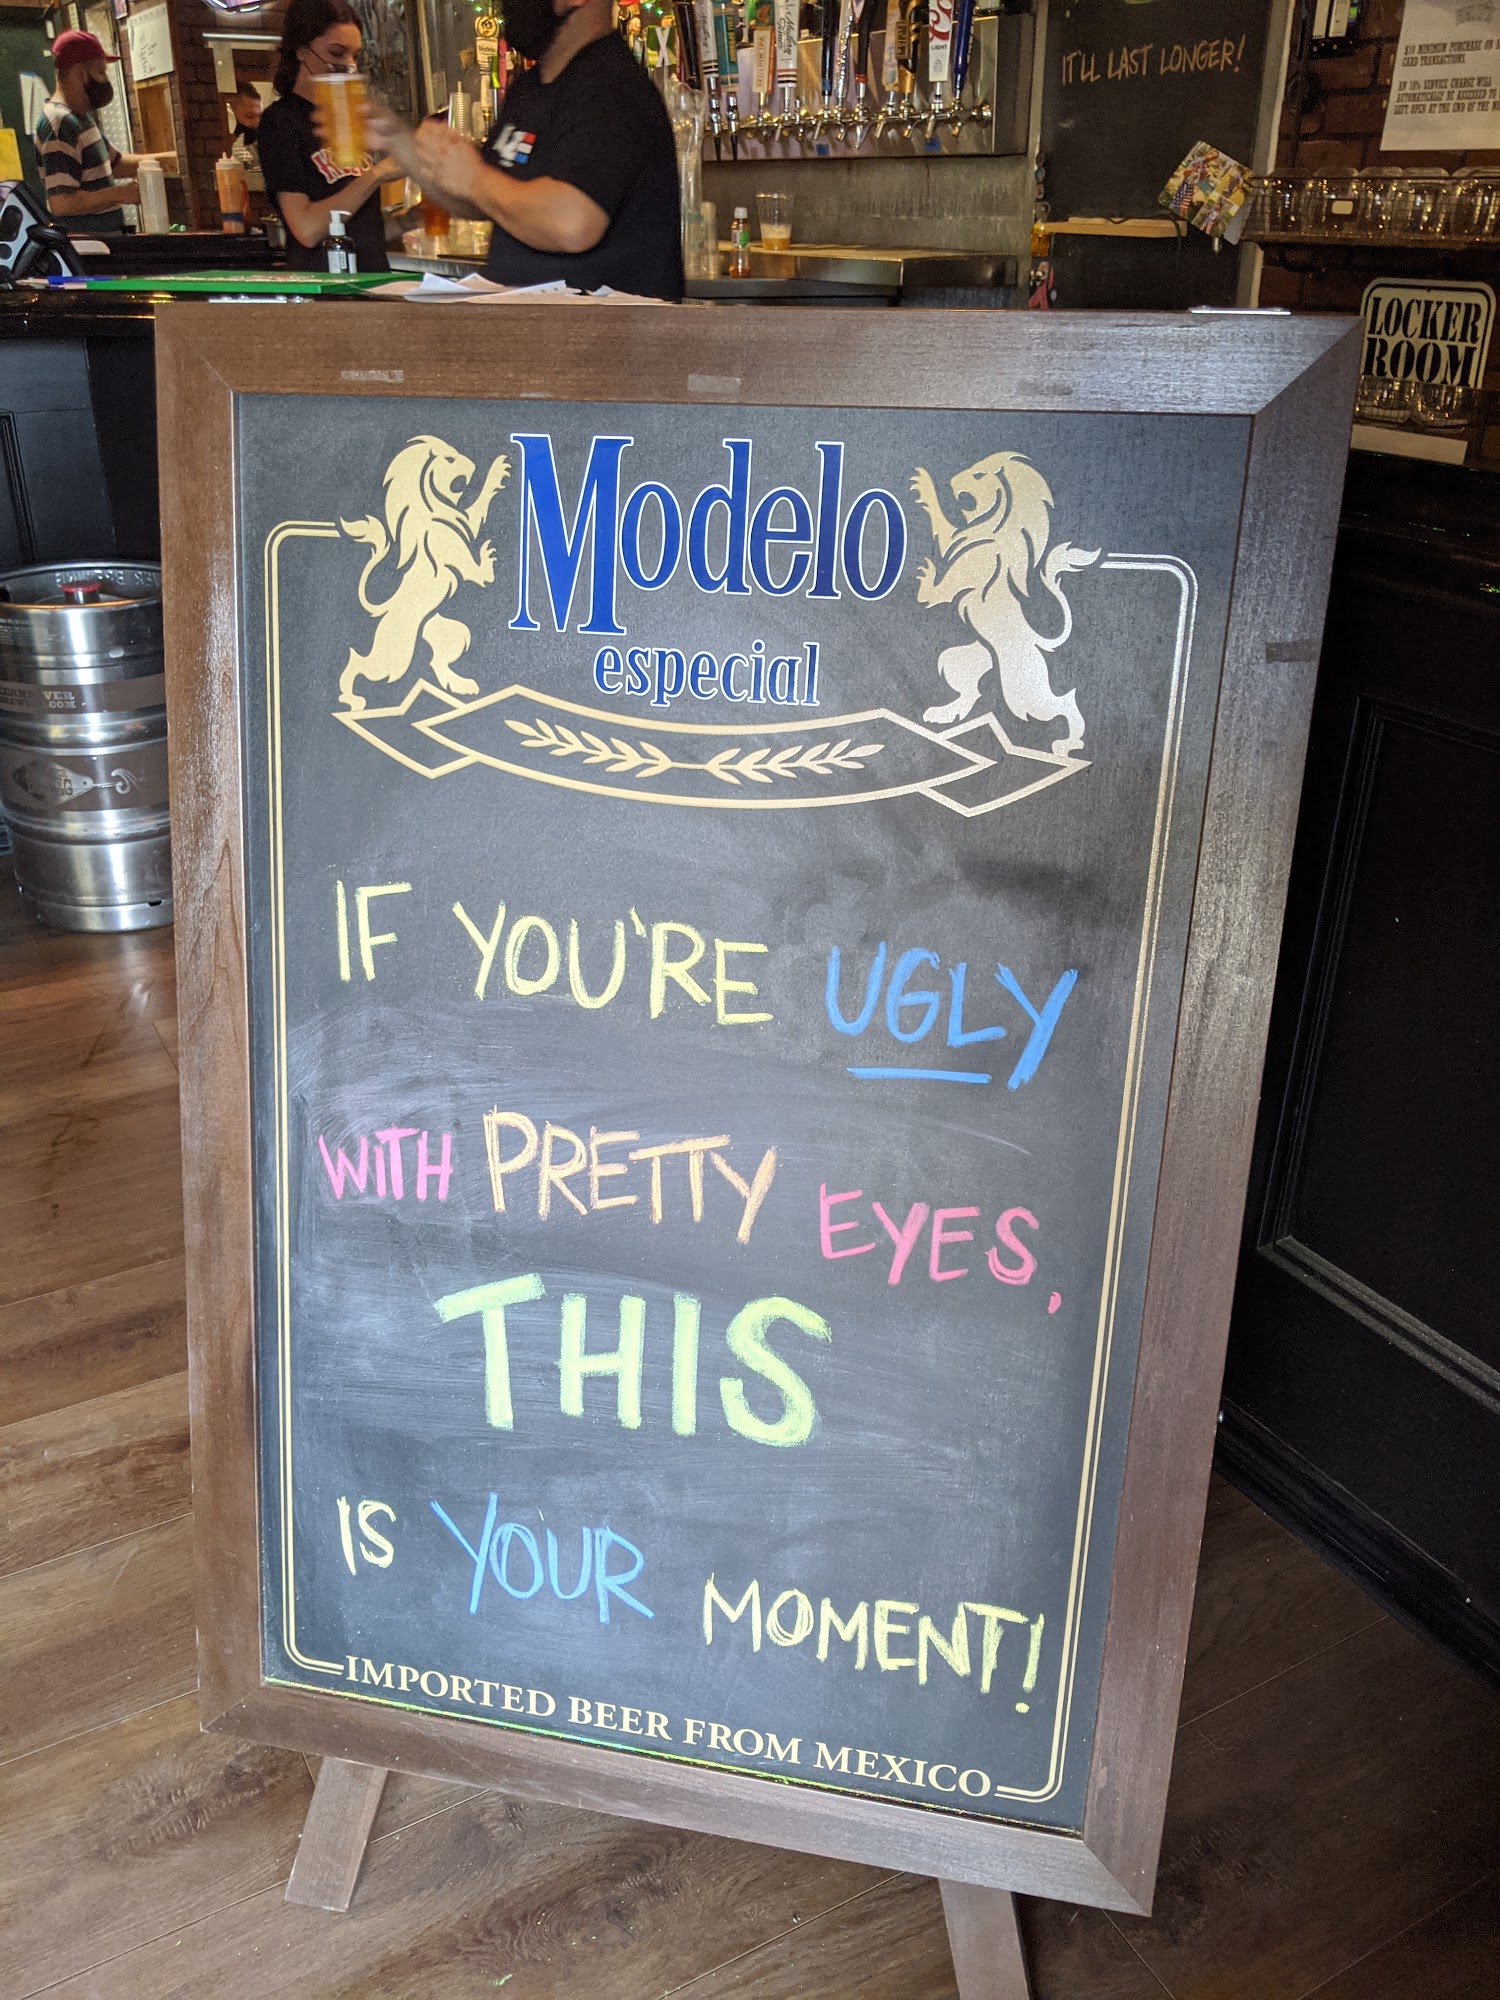 IT'LL LAST LONGER!
$10 MINIMUM PURCHASE ON
CARD TRANSACTIONS.
AN 18% SERVICE CHARGE WILL
AUTOMATICALLY BE ASSESSED TO
LEFT OPEN AT THE END OF THE
LIGHT
LOCKER
ROOM
Modelo
especial
IF YOU'RE UGLY
WITH PRETTY EYES,
THIS
IS YOUR MOMENT!
IMPORTED BEER FROM MEXICO
VER
.COM